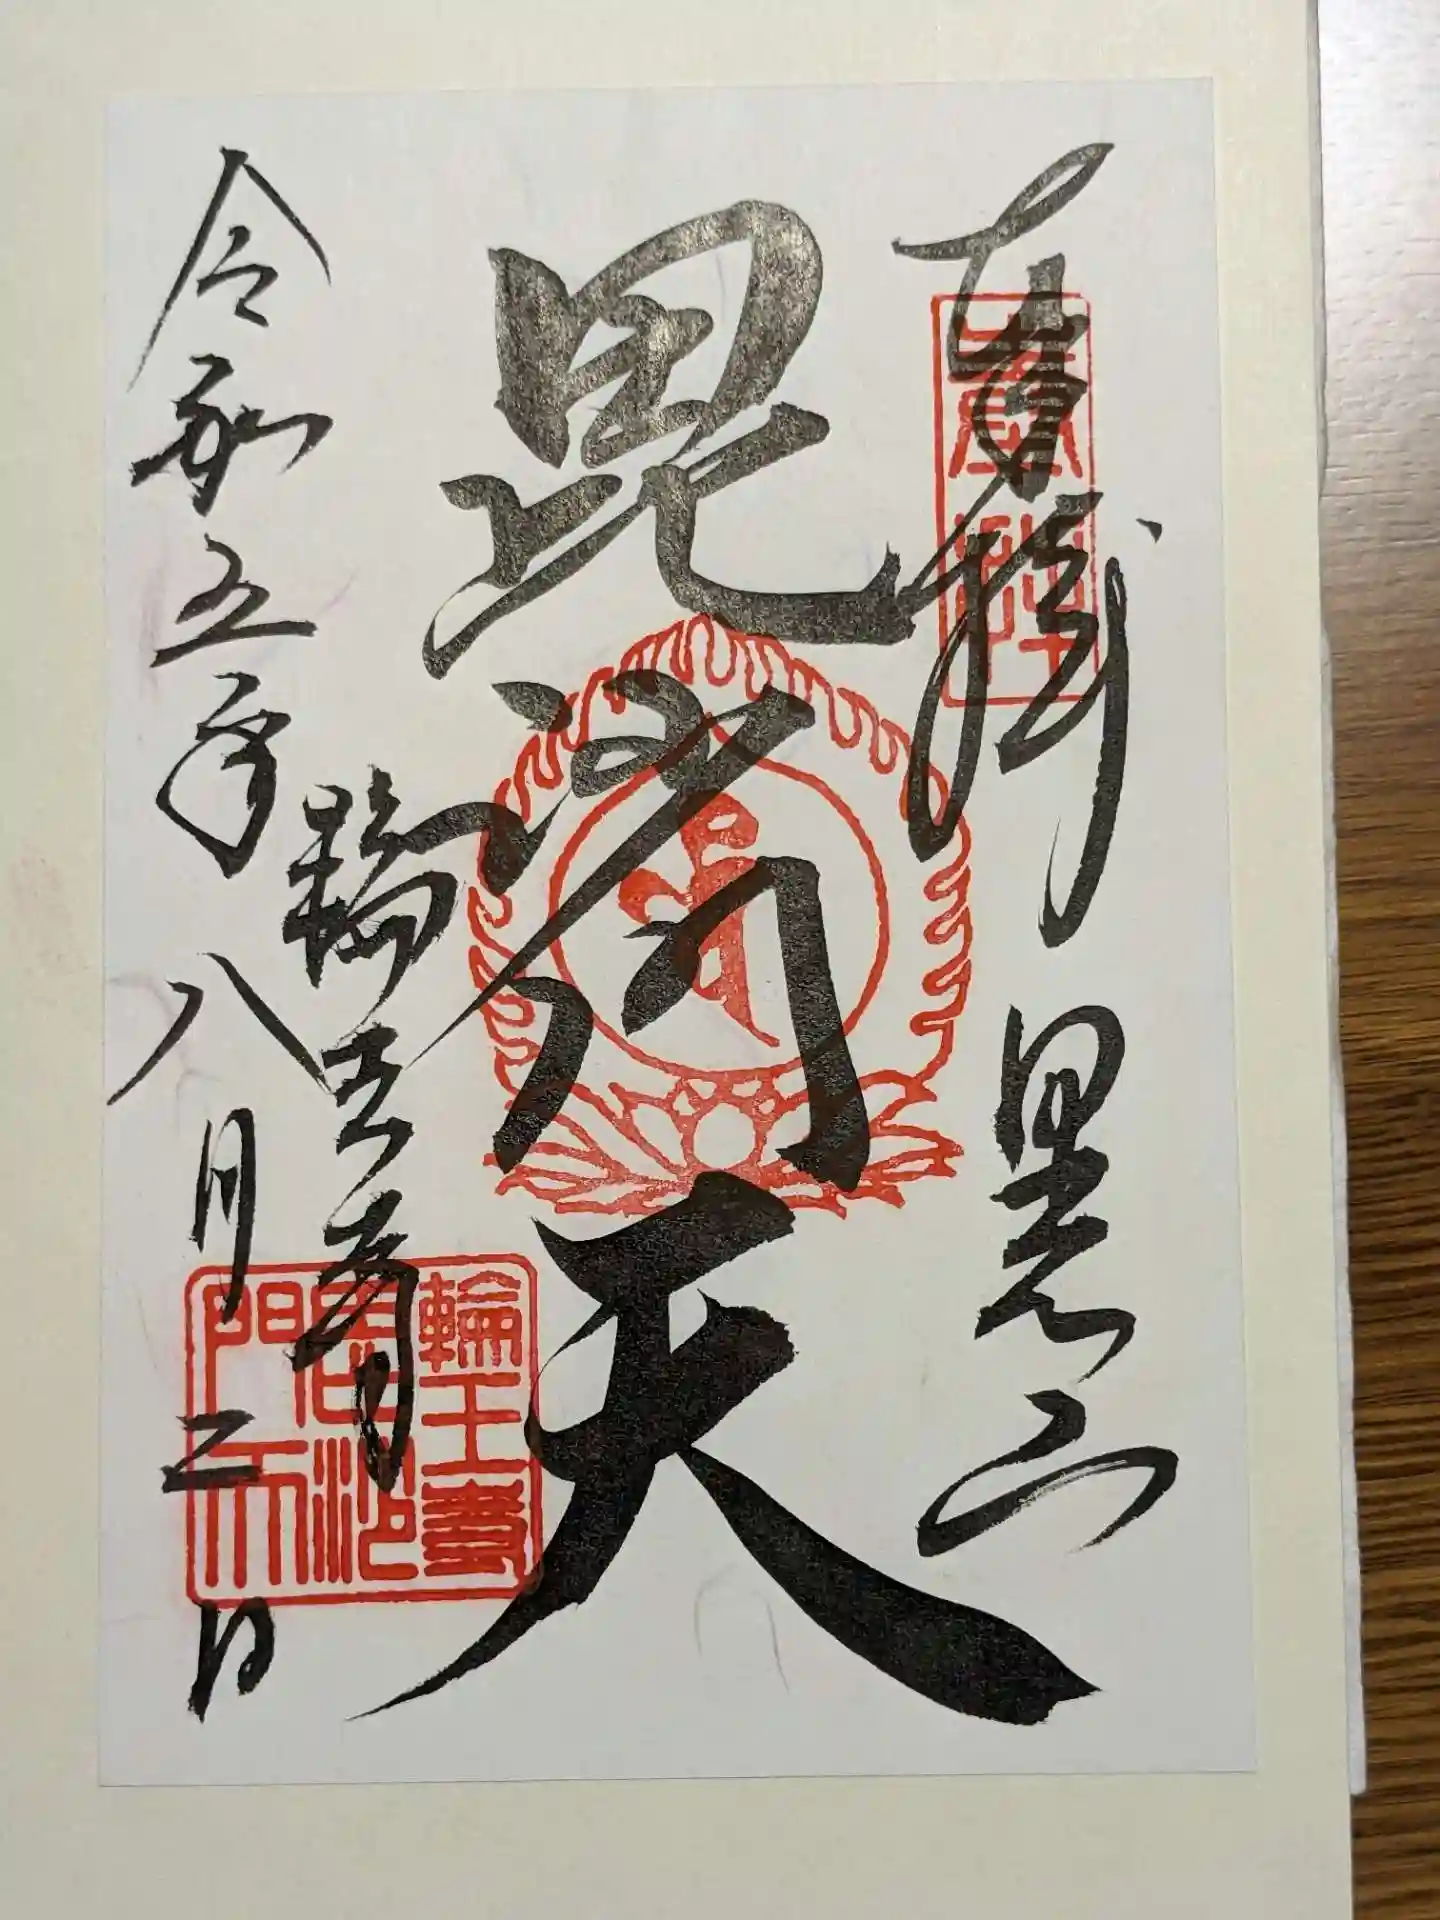 奉拝 日光山
毘沙門天
輪王寺
令和五年八月二日
輪王寺
毘沙
門天